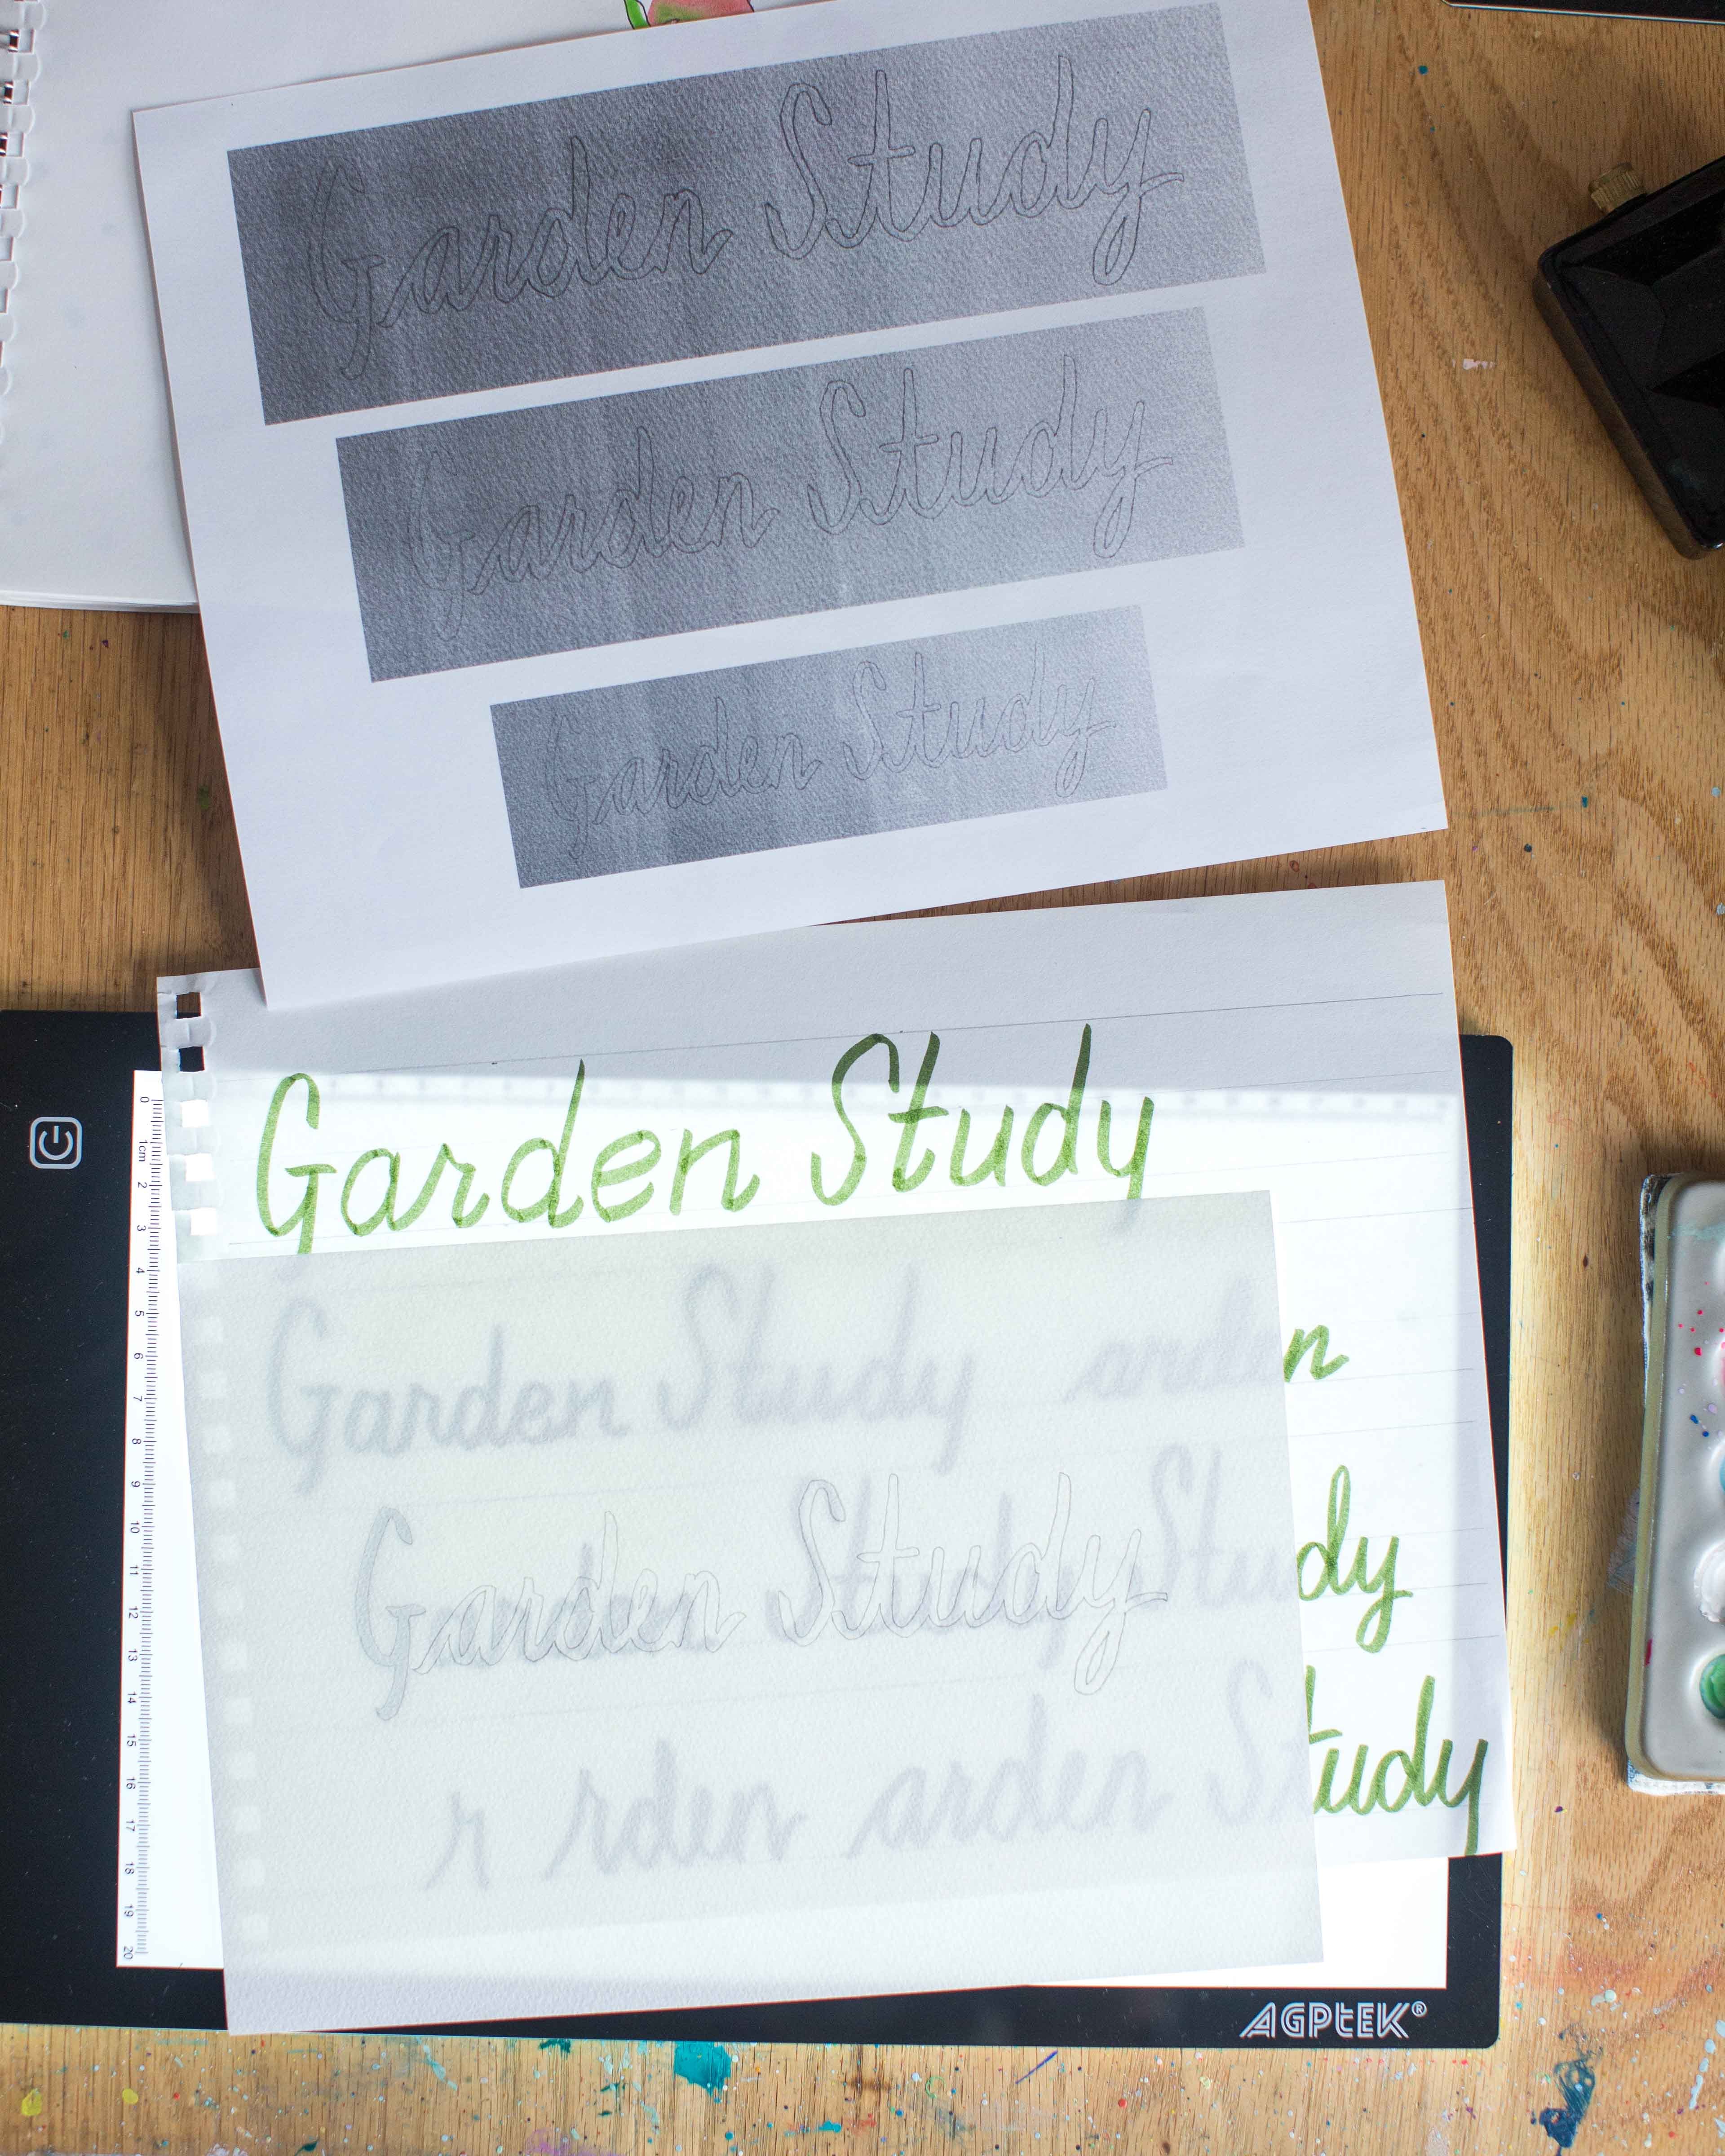 Garden Study
Garden Study
Garden Study
Garden Study
0
1cm
2
3
4
5
6
7
8
9
10
11
12
13
14
15
16
17
18
19
20
Garden Study arden
Garden Study Study
r rden arden Study
AGPtEK®